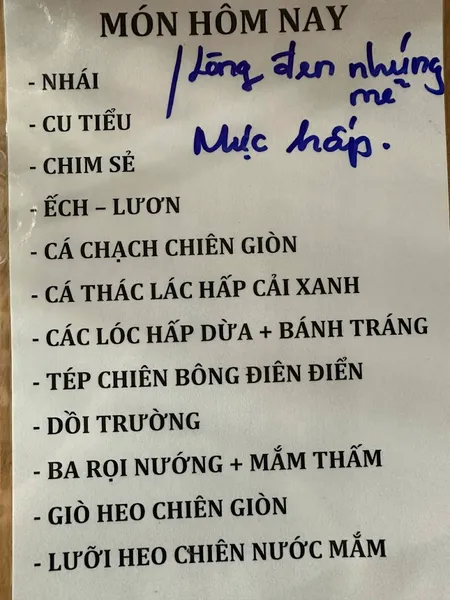 MÓN HÔM NAY
- NHÁI
/ Lòng đen nhúng
mẽ
- CU TIỂU
Mực hấp.
- CHIM SẺ
- ẾCH – LƯƠN
- CÁ CHẠCH CHIÊN GIÒN
- CÁ THÁC LÁC HẤP CẢI XANH
- CÁC LÓC HẤP DỪA + BÁNH TRÁNG
- TÉP CHIÊN BÔNG ĐIÊN ĐIỂN
- DỒI TRƯỜNG
- BA RỌI NƯỚNG + MẮM THẤM
- GIÒ HEO CHIÊN GIÒN
- LƯỠI HEO CHIÊN NƯỚC MẮM